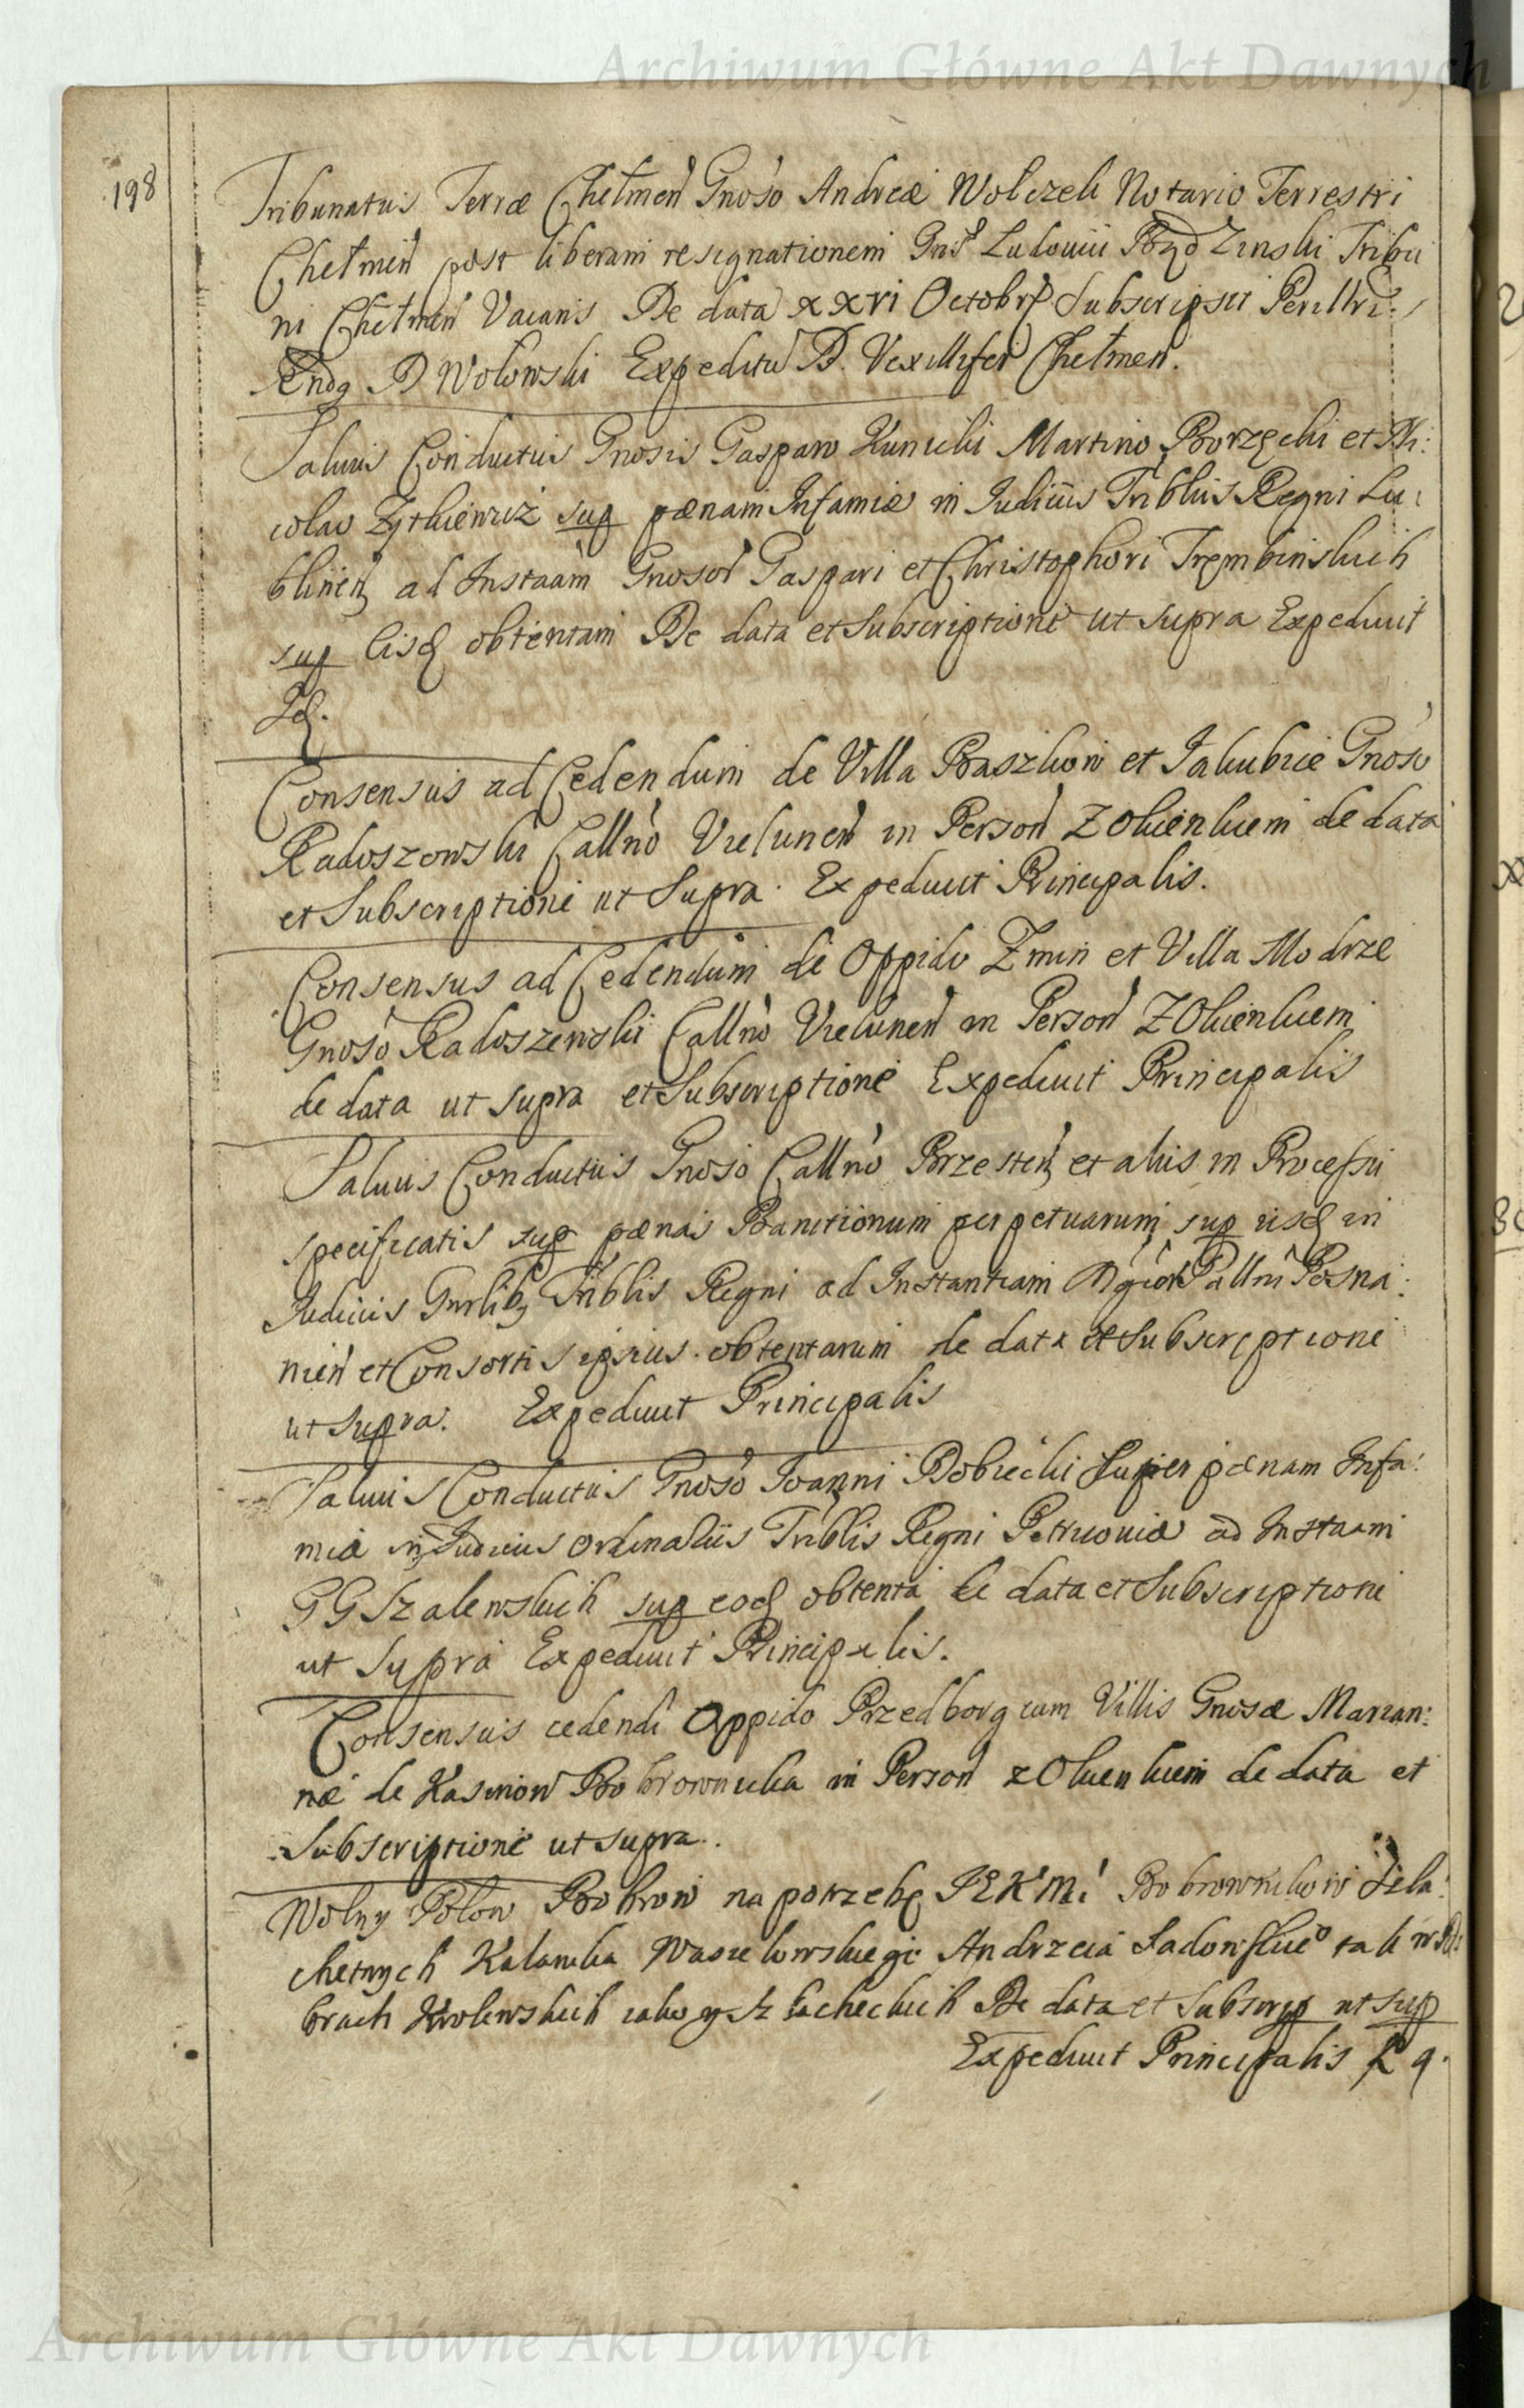 Archiwum Główne Akt Dawnych
198
Tribunatus Terræ Chełmen Gnoso Andreæ Wolczek Notario Terrestri
Chełmen post liberam resignationem Gnsi Ludovici Tribu
ni Chełmen Vacans De data xxvi Octobr Subscripsit Perillri:
Rndq D Wołowski Expeditū D. Vexillifer Chełmen.
Salvus Conductus Gnosis Gasparo Kunicki Martino Borzęcki et Ni:
colao Zytkiewicz sup pænam Infamiæ in Judiciis Triblius Regni Lu:
blinen ad Instaam Gnosor Gaspari et Christophori Trembinskich
sup obtentam De data et Subscriptione ut supra Expedivit
Id.
Consensus ad Cedendum de Villa Baszkow et Jakubice Gnoso
Radoszowski Callno Vielunen in Person ZOkienkiem de data
et Subscriptione ut Supra. Expedivit Principalis.
Consensus ad Cedendum de Oppido Zmin et Villa Modrze
Gnoso Radoszewski Callno Vielunen in Person ZOkienkiem
de data ut supra et Subscriptione Expedivit Principalis
Salvus Conductus Gnoso Callno Brzesten et aliis in Processu
specificatis sup pænas Banitionum perpetuarum sup iisd in
Judiciis Gnrlib Triblis Regni ad Instantiam Mgior Pallni Posna:
nien et Consortis ipsius obtentarum de data et Subscriptione
ut Supra. Expedivit Principalis
Salvus Conductus Gnoso Joanni Bobiecki Super pænam Infa:
miæ in Judiciis Ordinariis Triblis Regni Petricoviæ ad Instaam
GG Szalewskich sup eod obtenta de data et Subscriptione
ut Supra Expedivit Principalis.
Consensus cedendi Oppido Przedborg cum Villis Gnosæ Marian:
næ de Kasinow Bobrownicka in Person zOkienkiem de data et
Subscriptione ut supra.
Wolny Połow Bobrow na potrzebę JEKMi Bobrownikow Szla:
chetnych Wasielowskiego Andrzeia Sadowskieo tak w Do:
brach Krolewskich iako y Szlacheckich De data et Subscrip ut sup
Expedivit Principalis
Archiwum Główne Akt Dawnych